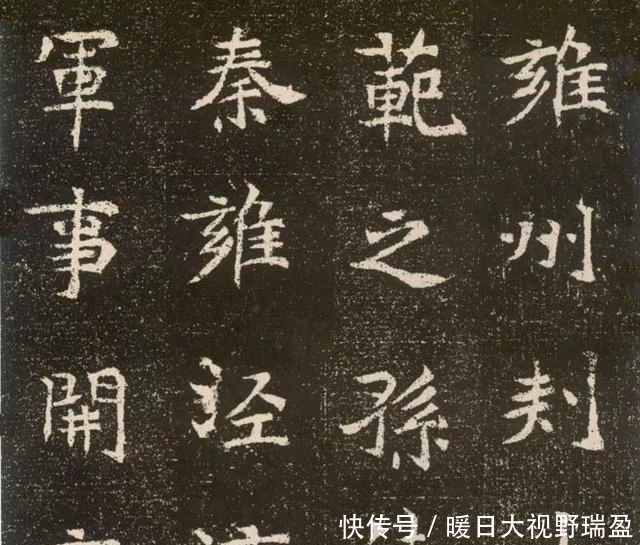 雍州刾
範之孫
秦雍泾
軍事開
快传号/暖日大视野瑞盈